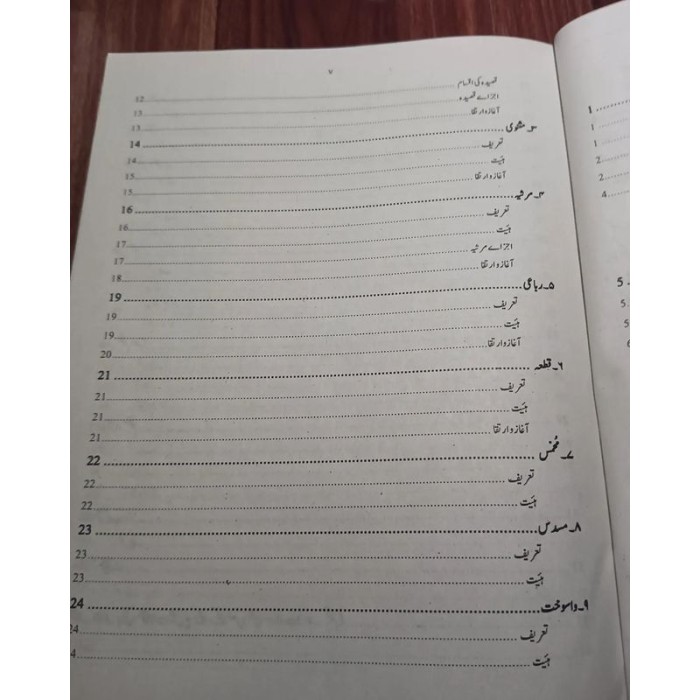 ۷
قصیدہ کی اقسام 12
اجزاے قصیدہ 13
آغاز و ارتقا 13
۳۔ مثنوی 14
تعریف 14
ہیئت 15
آغاز و ارتقا 15
۴۔ مرثیہ 16
تعریف 16
ہیئت 17
اجزاے مرثیہ 17
آغاز و ارتقا 18
۵۔ رباعی 19
تعریف 19
ہیئت 19
آغاز و ارتقا 20
۶۔ قطعہ 21
تعریف 21
ہیئت 21
آغاز و ارتقا 21
۷۔ مخمس 22
تعریف 22
ہیئت 22
۸۔ مسدس 23
تعریف 23
ہیئت 23
۹۔ واسوخت 24
تعریف 24
ہیئت 4
1
1
1
2
2
4
5
5
5
6